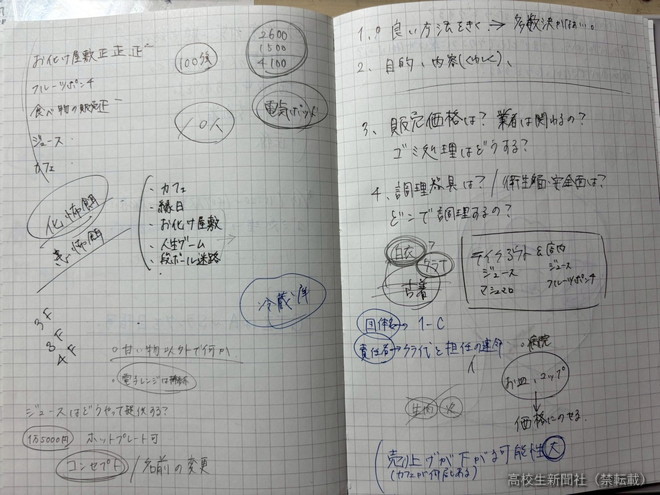 お化け屋敷 正正正
フルーツポンチ
食べ物の販売 正
ジュース
カフェ
100強
2600
1500
4,100
10人
電気ポット
・カフェ
・縁日
・お化け屋敷
・人生ゲーム
・段ボール迷路
冷蔵庫
3F
3F
4F
○甘い物以外で何か
○電子レンジは
ジュースはどうやって提供する?
1万5000円 ホットプレート可
コンセプト/名前の変更
1.○良い方法をきく→多数決
2.目的、内容(くわしく)
3、販売価格は?業者は関わるの?
ゴミ処理はどうする?
4、調理器具は?/衛生面・安全面は?
どこで調理するの?
白衣
古着
テイクアウト&店内
ジュース ジュース
マシュマロ フルーツポンチ
団体名→1-C
責任者→クラ代と担任の連名
○病院
お皿、コップ
↓
価格にのせる
売り上げが下がる可能性大
(カフェが何店もある)
高校生新聞社(禁転載)